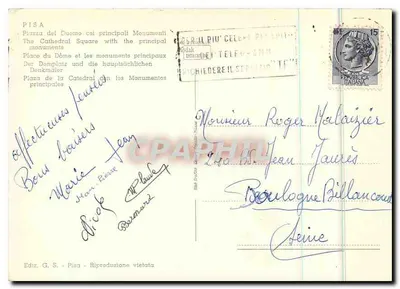 PISA
Piazza del Duomo coi principali Monumenti
The Cathedral Square with the principal
monuments
Place du Dôme et les monuments principaux
Der Domplatz und die hauptsächlichen
Denkmäler
Plaza de la Catedral con los Monumentes
principales
15
Affectueuses pensées
Bons baisers
Marie Jean
Jean-René
Nicole
Claude
Bernard
Monsieur Roger Malaizier
240 bis Jean Jaurès
Boulogne Billancourt
Seine
Ediz. G. S. - Pisa - Riproduzione vietata